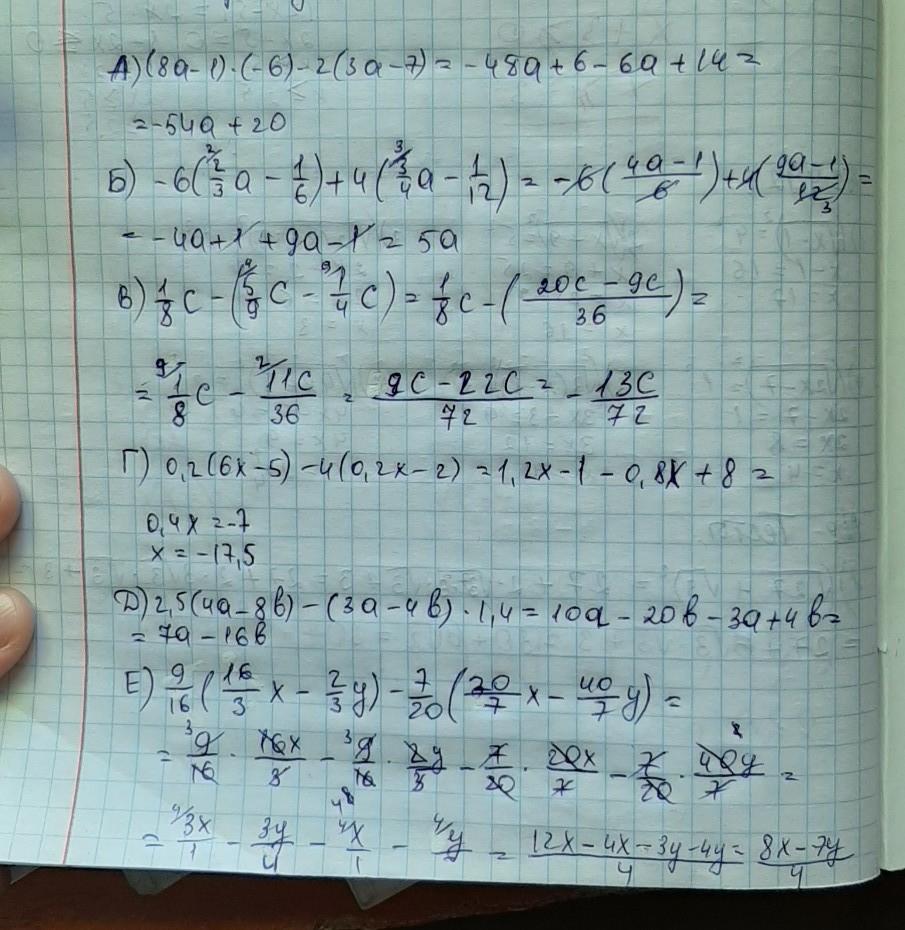 А) (8a-1)·(-6)-2(3a-7) = -48a+6-6a+14 =
= -54a + 20
Б) -6(2/3 a - 1/6) + 4(3/4 a - 1/12) = -6((4a-1)/6) + 4((9a-1)/12) =
= -4a+1 + 9a-1 = 5a
В) 1/8 c - (5/9 c - 1/4 c) = 1/8 c - ((20c - 9c)/36) =
= 1/8 c - 11c/36 = (9c - 22c)/72 = - 13c/72
Г) 0,2(6x-5) - 4(0,2x-2) = 1,2x - 1 - 0,8x + 8 =
0,4x = -7
x = -17,5
Д) 2,5(4a-8b) - (3a-4b)·1,4 = 10a - 20b - 3a + 4b =
= 7a - 16b
Е) 9/16 (16/3 x - 2/3 y) - 7/20 (20/7 x - 40/7 y) =
= 9/16 · 16x/3 - 9/16 · 2y/3 - 7/20 · 20x/7 - 7/20 · 40y/7 =
= 3x/1 - 3y/4 - x/1 - y = (12x - 4x - 3y - 4y)/4 = (8x - 7y)/4